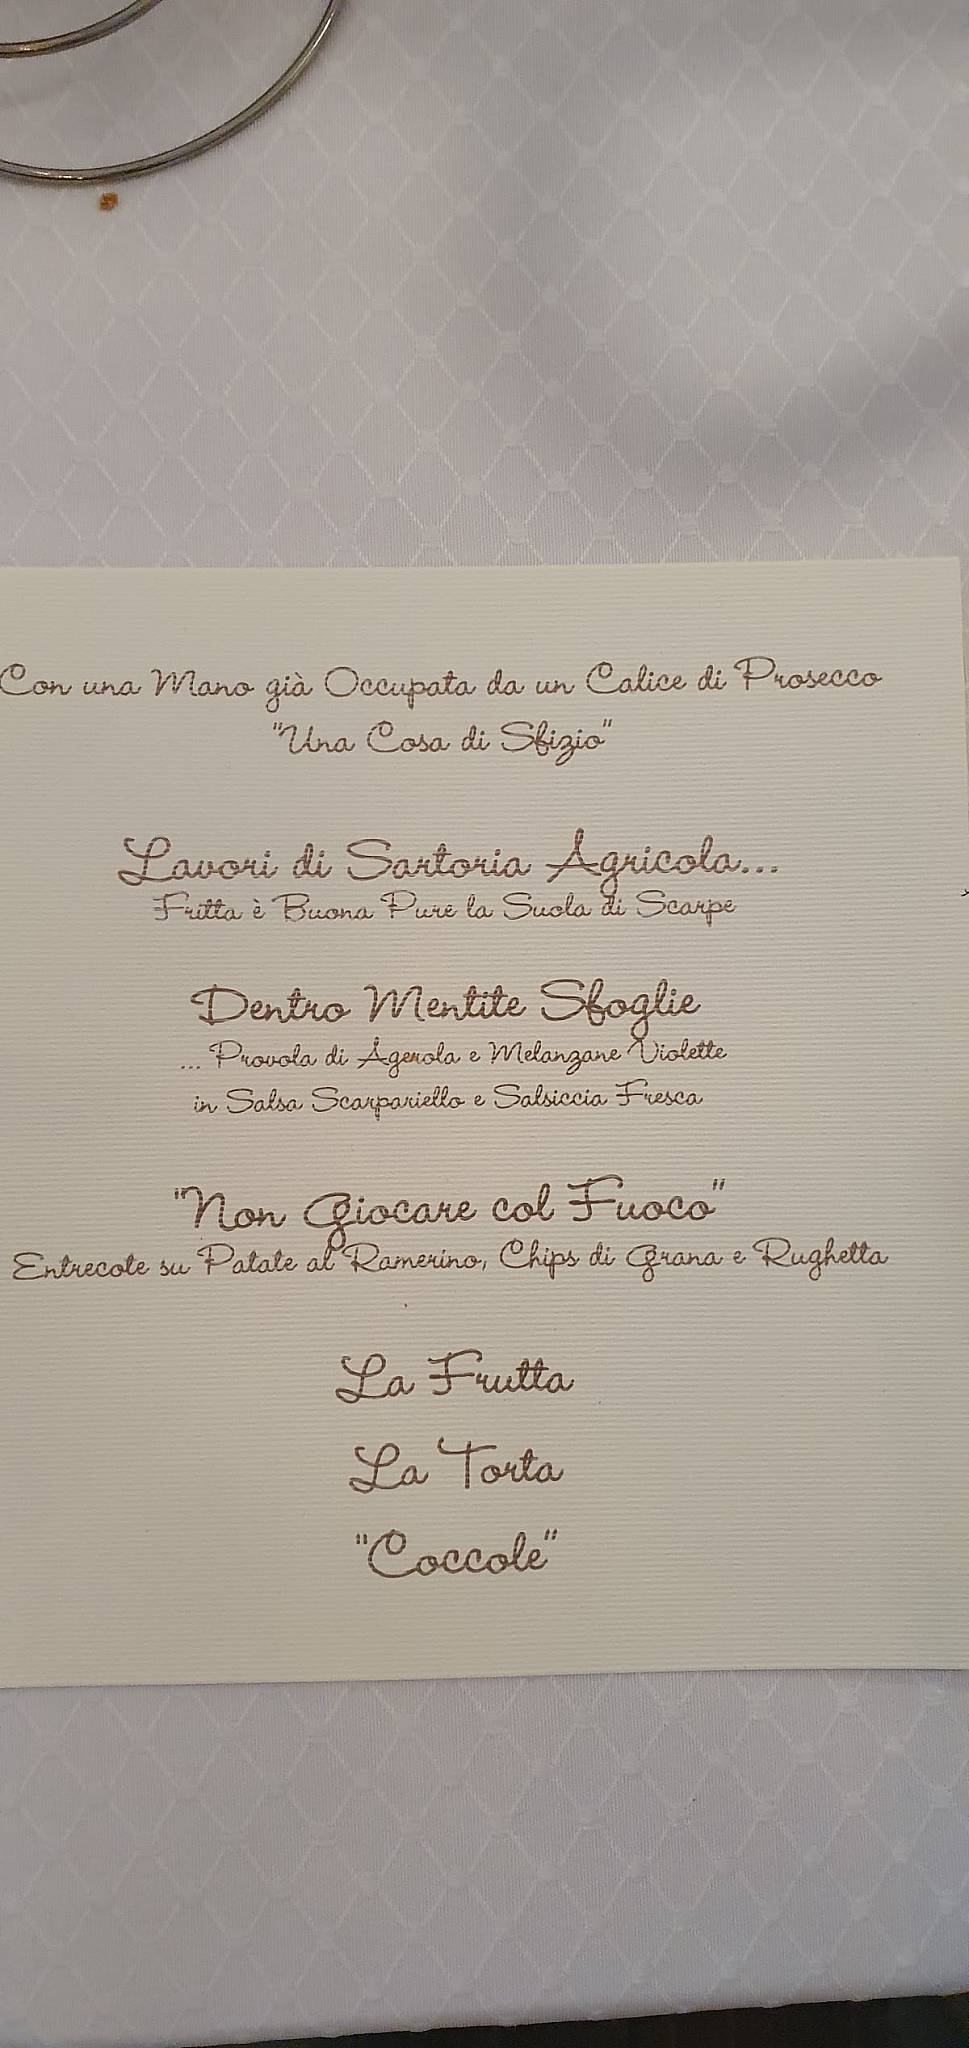 Con una Mano già Occupata da un Calice di Prosecco
"Una Cosa di Sfizio"
Lavori di Sartoria Agricola...
Fritta è Buona Pure la Suola di Scarpe
Dentro Mentite Sfoglie
... Provola di Agerola e Melanzane Violette
in Salsa Scarpariello e Salsiccia Fresca
"Non Giocare col Fuoco"
Entrecote su Patate al Ramerino, Chips di Grana e Rughetta
La Frutta
La Torta
"Coccole"